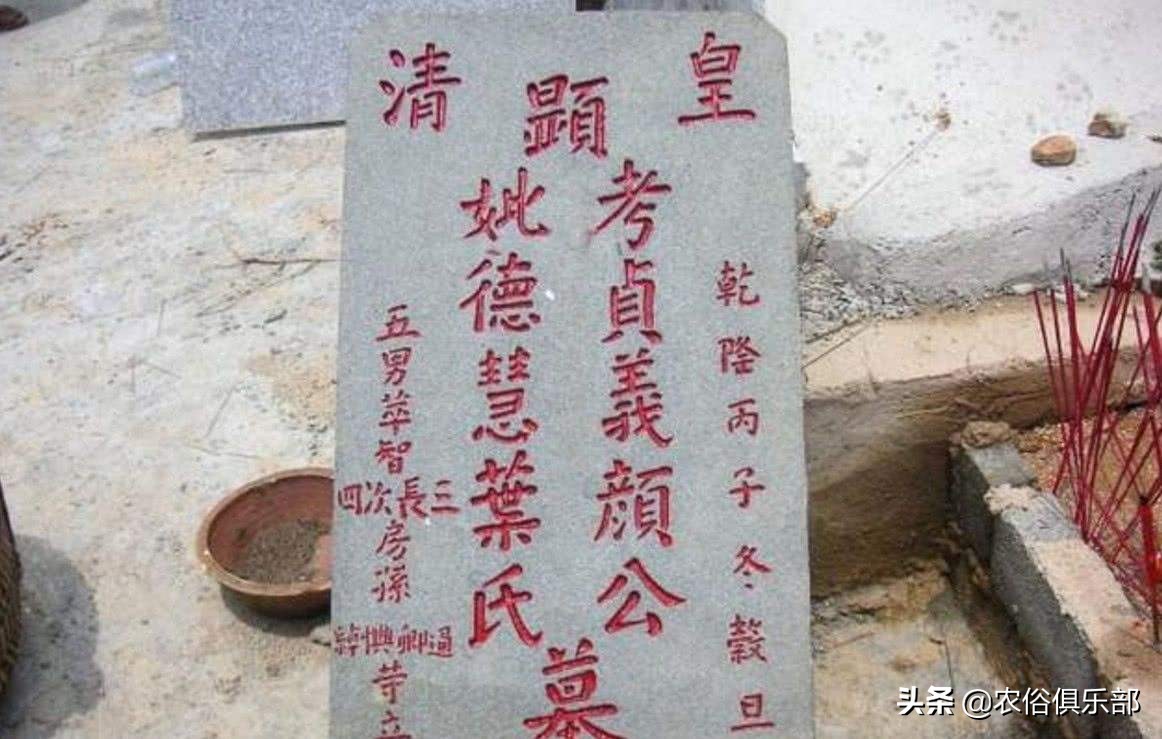 皇清
乾隆丙子冬穀旦
顯
考貞義顏公
妣德慧葉氏
墓
五男
智
三長次四
房孫
卿
等立
头条 @农俗俱乐部